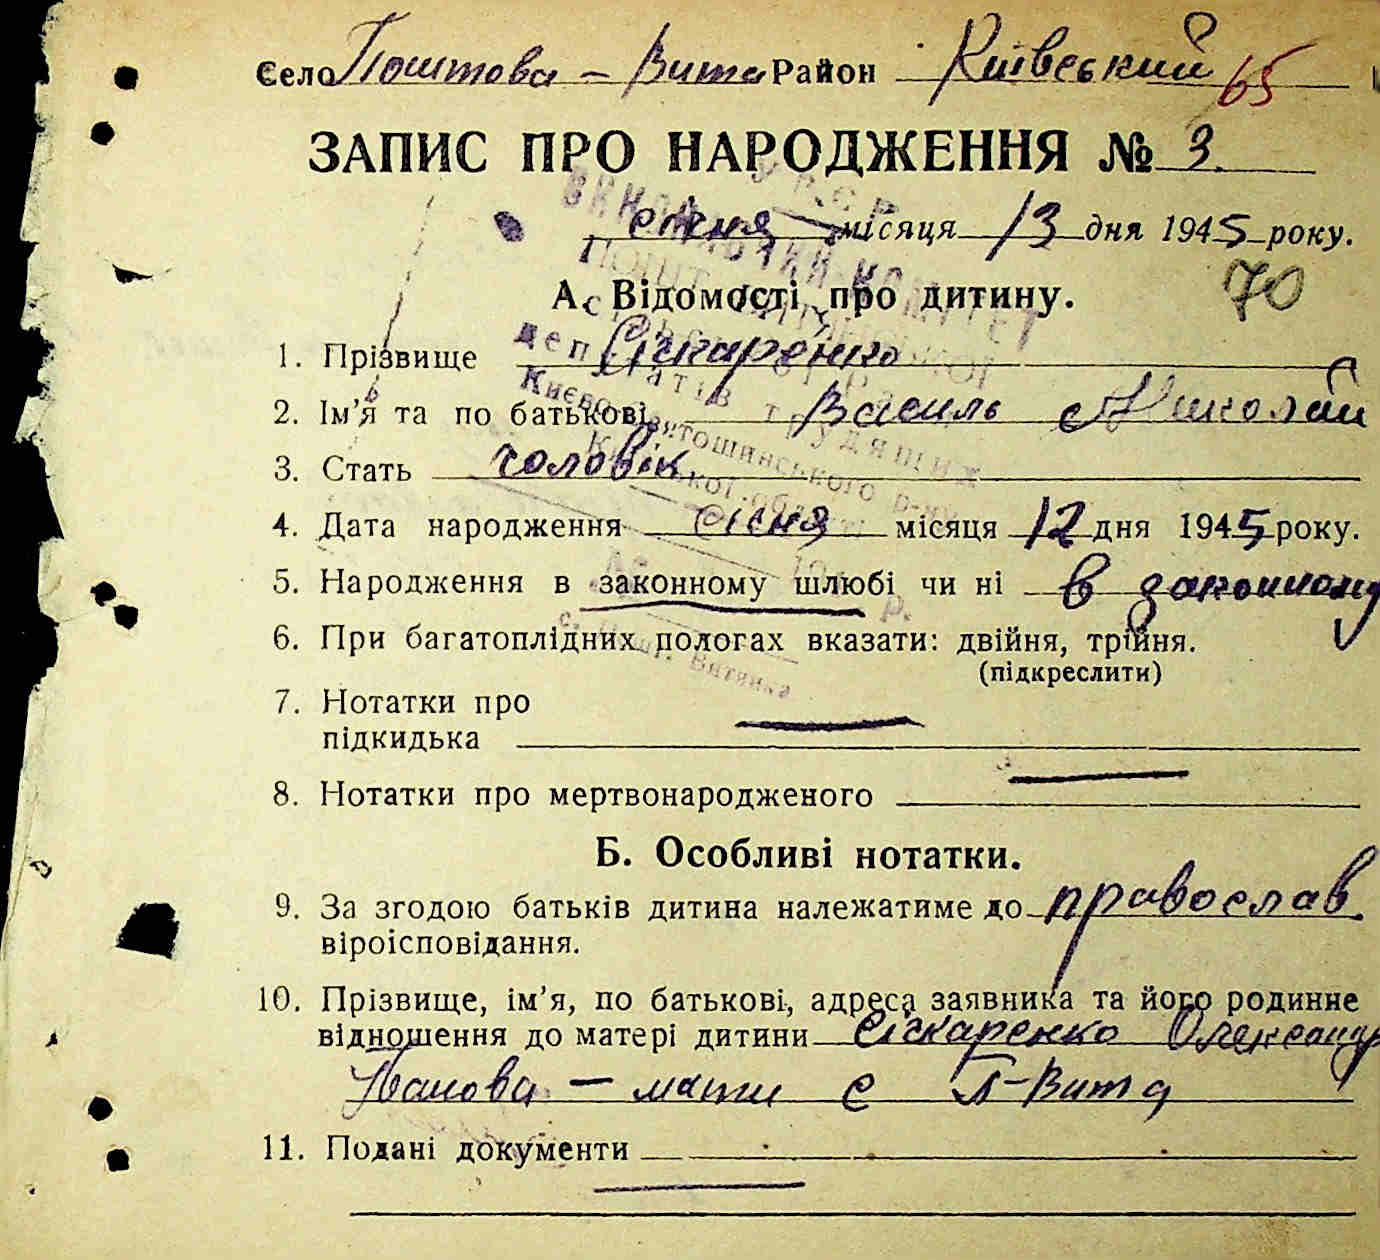 Село Поштова – Вита Район Київський
65
ЗАПИС ПРО НАРОДЖЕННЯ № 3.
січня місяця 13 дня 1945 року.
А. Відомості про дитину.
70
1. Прізвище Сіскаренко
2. Ім'я та по батькові Василь Миколай
3. Стать чоловік
4. Дата народження січня місяця 12 дня 1945 року.
5. Народження в законному шлюбі чи ні в законному
6. При багатоплідних пологах вказати: двійня, трійня.
(підкреслити)
7. Нотатки про
підкидька
8. Нотатки про мертвонародженого
Б. Особливі нотатки.
9. За згодою батьків дитина належатиме до православ.
віроісповідання.
10. Прізвище, ім'я, по батькові, адреса заявника та його родинне
відношення до матері дитини Сіскаренко Олександр
Іванова – мати с П-Вита
11. Подані документи
УРСР
ВИКОНАВЧИЙ КОМІТЕТ
депутатів трудящих
Києво-Святошинського р-ну
Київської області